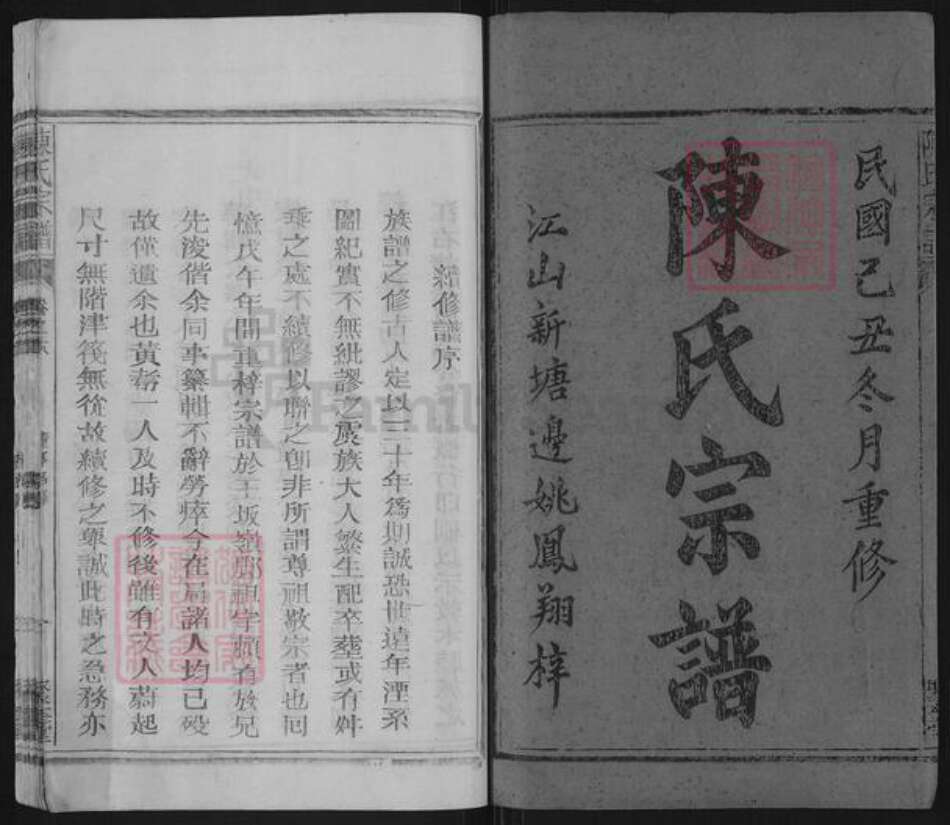 民國己丑冬月重修
陳氏宗譜
江山新塘邊姚鳳翔梓
續修譜序
族譜之修古人定以三十年爲期誠恐世遠年湮系
圖紀實不無紕謬之虞族大人繁生配卒塟或有舛
乘之處不續修以聯之卽非所謂尊祖敬宗者也回
憶戊午年間重梓宗譜於王坂嶺鄔祖宇賴有放兄
先浚偕余同事纂輯不辭勞瘁今在局諸人均已殁
故僅遺余也黃耇一人及時不修後雖有文人蔚起
尺寸無階津筏無從故續修之舉誠此時之急務亦
陳氏宗譜